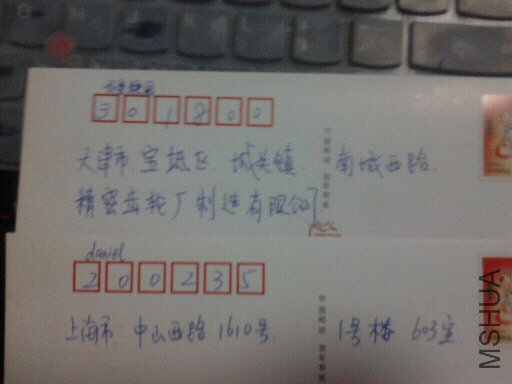 301800
天津市.宝坻区 城关镇. 南城西路.
精密齿轮厂制造有限公司
daniel
200235
上海市. 中山西路 1610号. 1号楼 603室
MSHUA